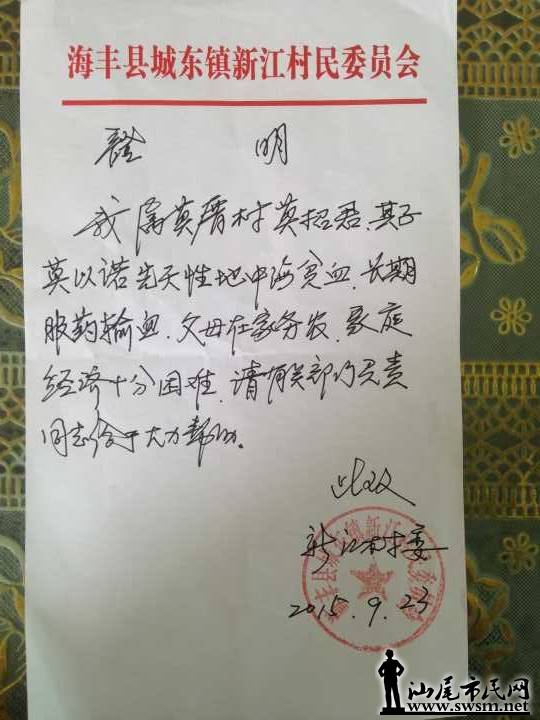 海丰县城东镇新江村民委员会
證 明
我属莫厝村莫招君,其子
莫以诺先天性地中海贫血、长期
服药输血、父母在家务农、家庭
经济十分困难、请有关部门负责
同志给于大力帮助。
此致
新江村委
2015.9.23
海丰县城东镇新江村民委员会
汕尾市民网
www.swsm.net